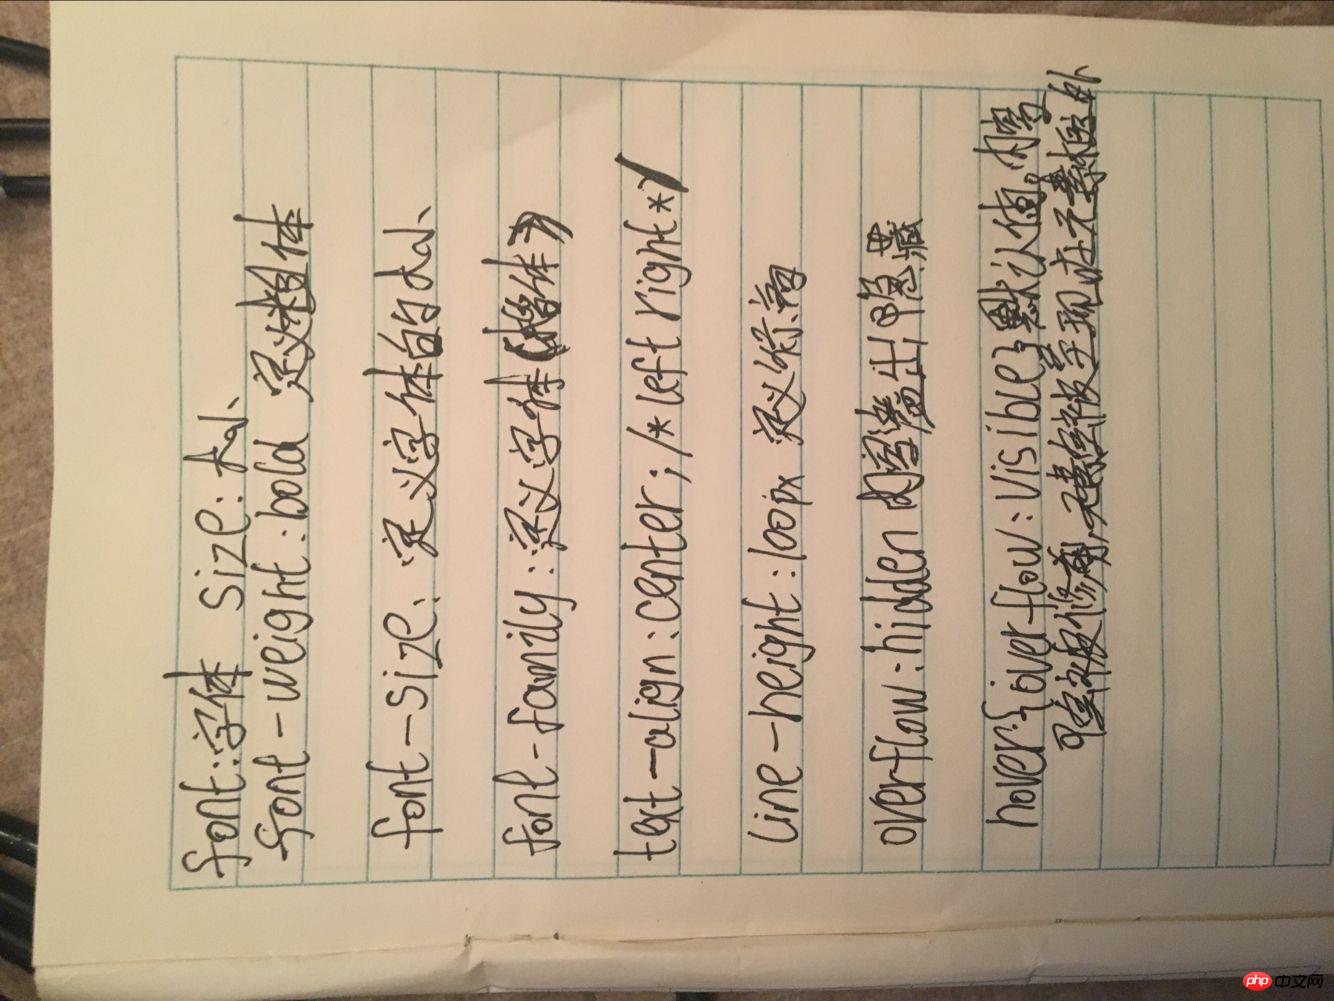 font:字体 size:大小
font-weight:bold 定义粗体
font-size:定义字体的大小
font-family:定义字体(楷体)
text-align:center;/*left right*/
line-height:100px 定义行高
overflow:hidden 内容溢出隐藏
hover:{overflow:visible}默认值。内容
不会被修剪,会呈现在元素框外
php 中文网